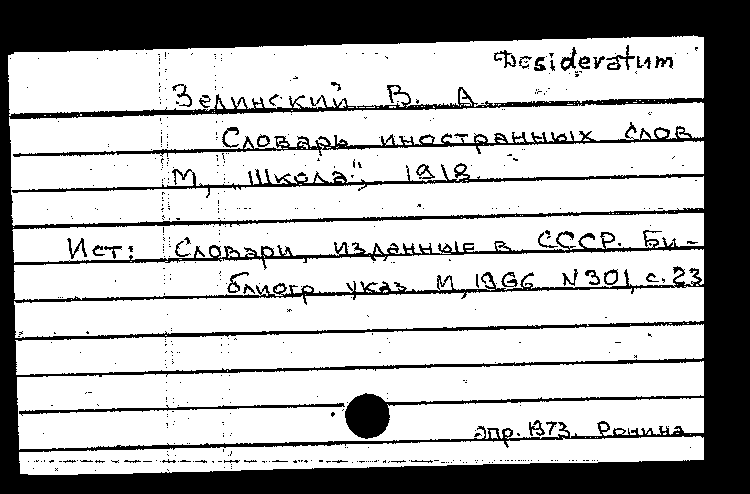 Desideratum
Зелинский В. А.
Словарь иностранных слов
М, „Школа", 1918.
Ист: Словари, изданные в СССР. Би-
блиогр. указ. М, 1966 N 301, с. 23
апр. 1973. Ронина